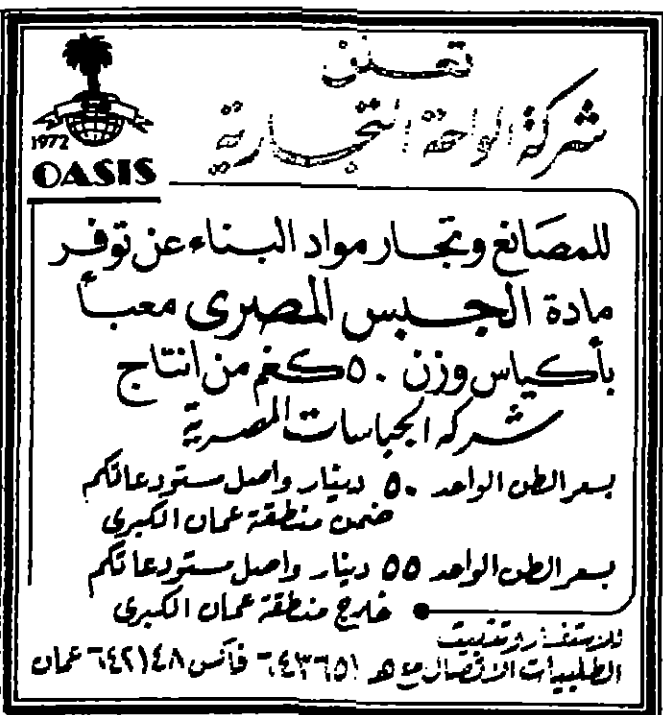 تعلن
شركة الواحة التجارية
1972
OASIS
للمصانع وتجار مواد البناء عن توفر
مادة الجبس المصرى معبأ
بأكياس وزن ٥٠ كغم من انتاج
شركة الجباسات المصرية
بسعر الطن الواحد ٥٠ دينار واصل مستودعاتكم
ضمن منطقة عمان الكبرى
بسعر الطن الواحد ٥٥ دينار واصل مستودعاتكم
خارج منطقة عمان الكبرى
للاستفسار وتثبيت
الطلبيات الاتصال مع هـ ٦٤٣٦٥١ فاكس ٦٤٢١٤٨ عمان